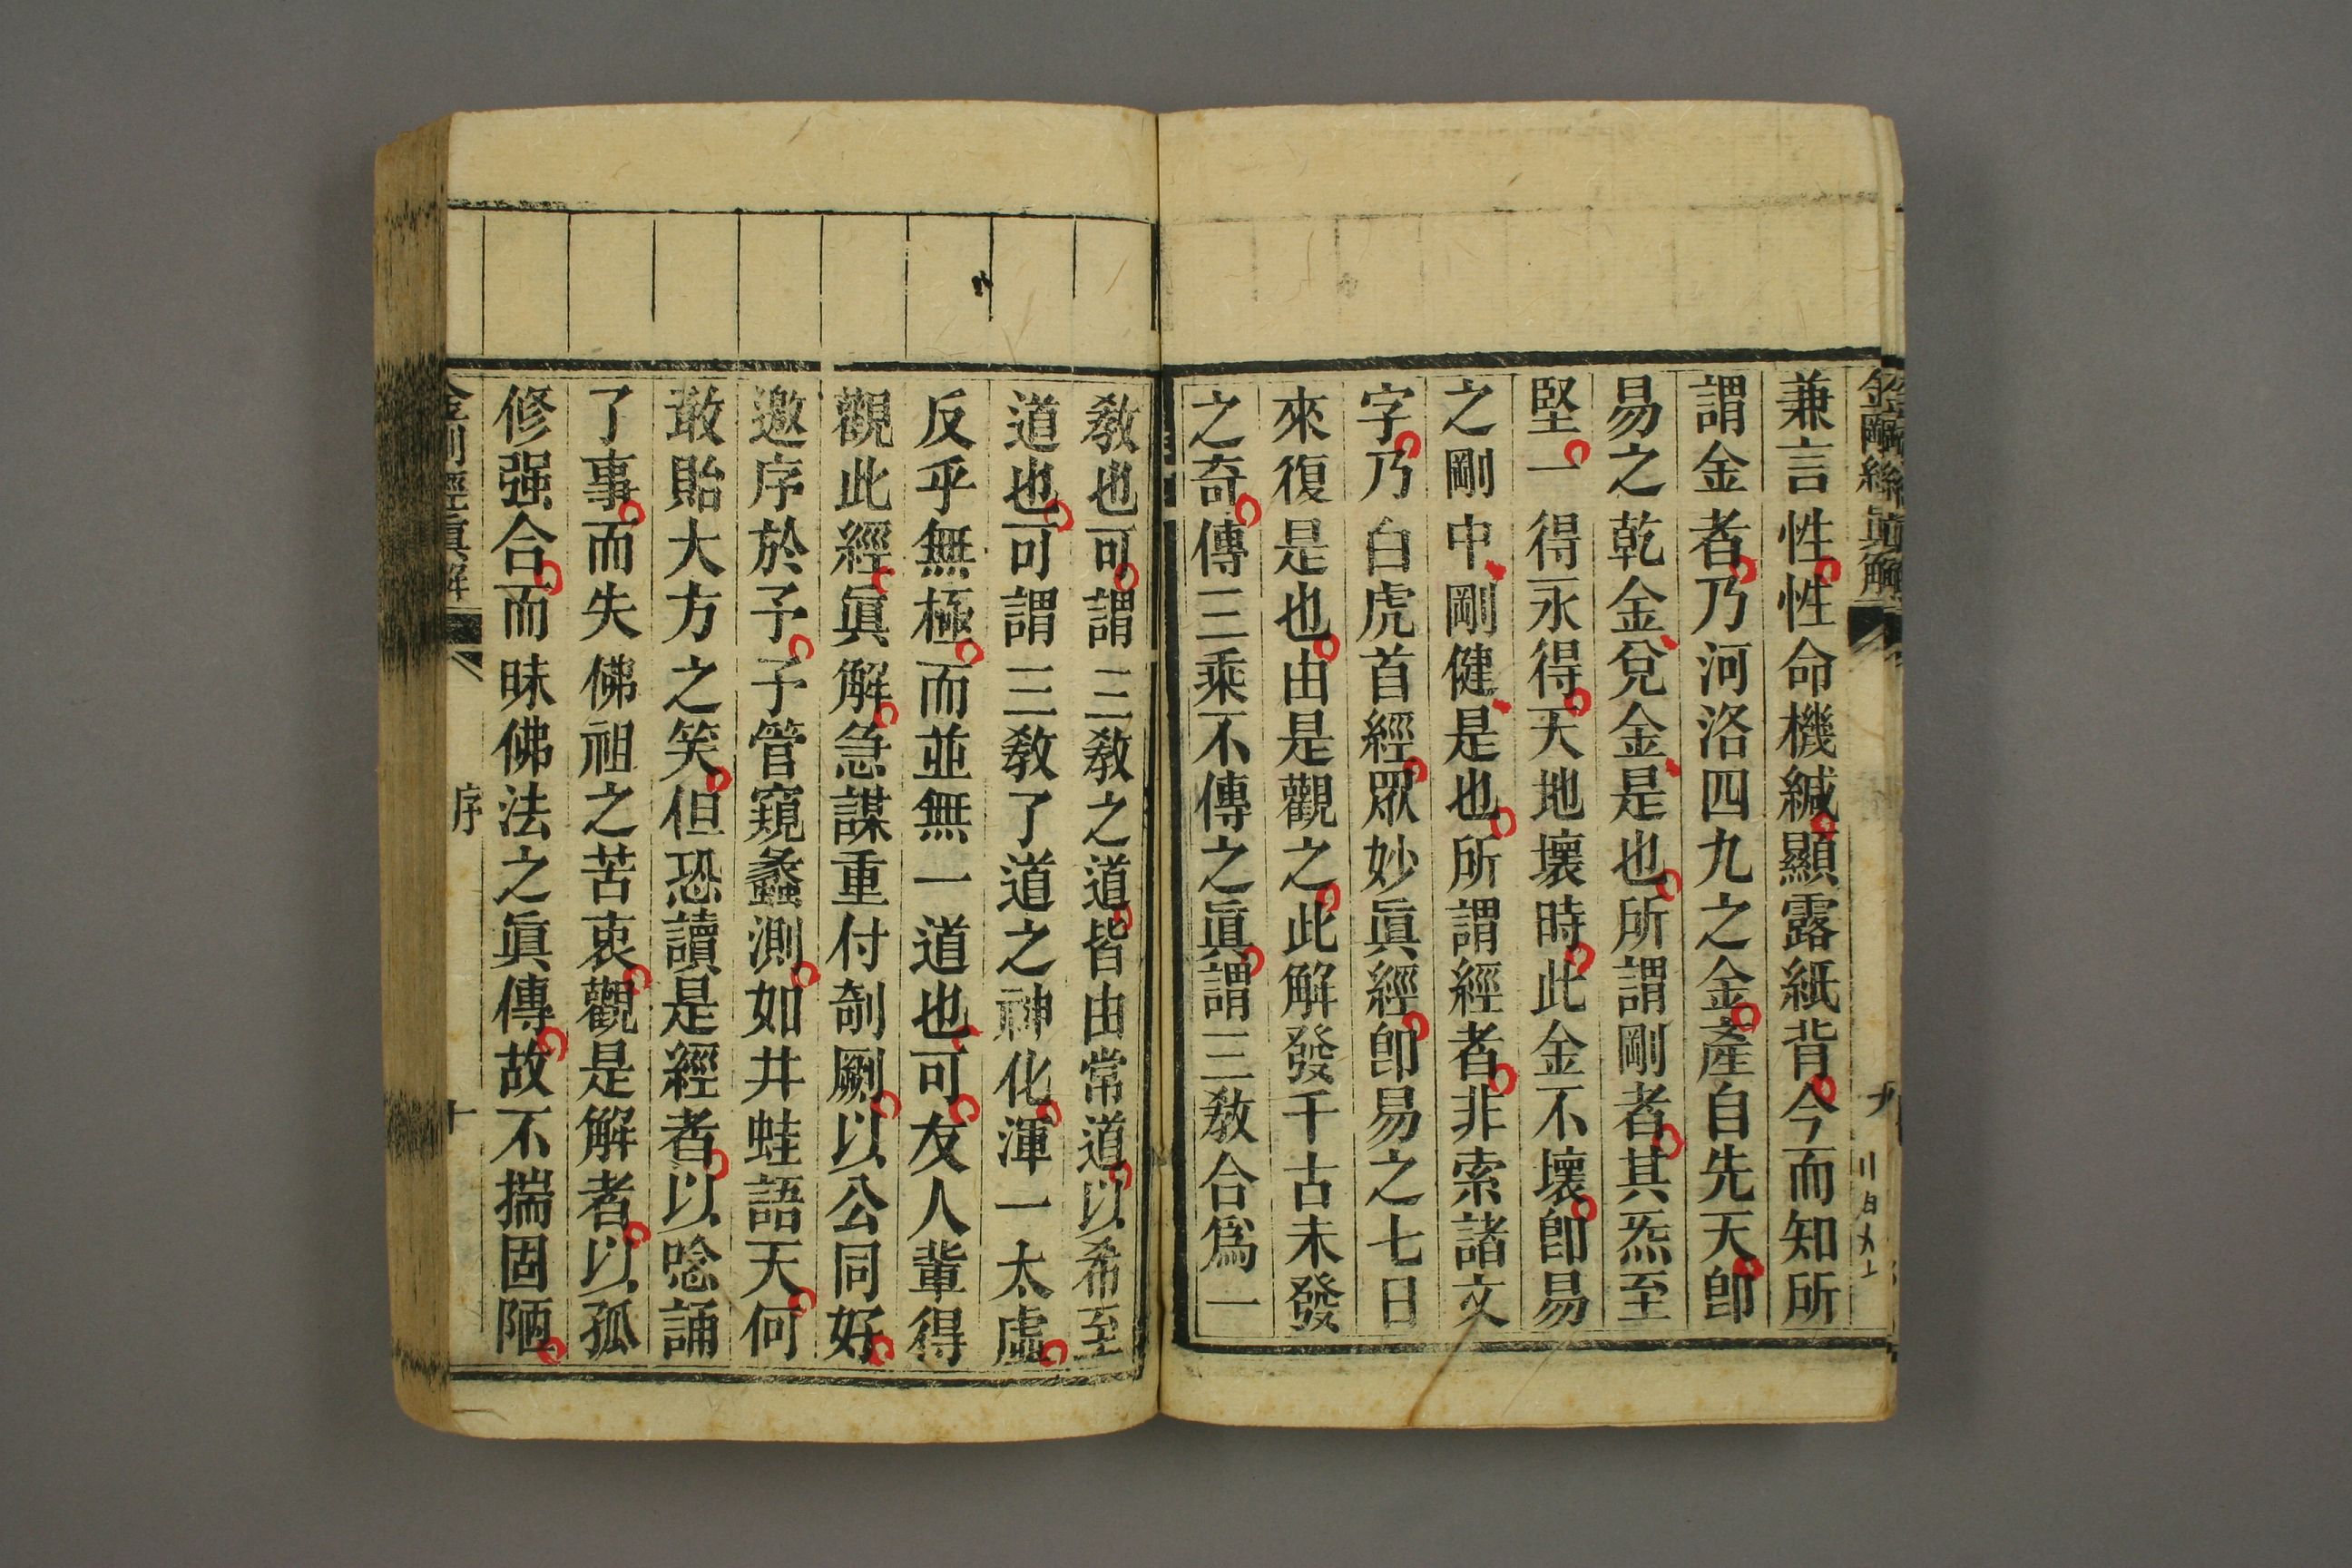 金剛經真解
兼言性性命機緘顯露紙背今而知所
謂金者乃河洛四九之金產自先天卽
易之乾金兌金是也所謂剛者其炁至
堅一得永得天地壞時此金不壞卽易
之剛中剛健是也所謂經者非索諸文
字乃白虎首經眾妙眞經卽易之七日
來復是也由是觀之此解發千古未發
之奇傳三乘不傳之眞謂三敎合爲一
敎也可謂三敎之道皆由常道以希至
道也可謂三敎了道之神化渾一太虛
反乎無極而並無一道也可友人輩得
觀此經眞解急謀重付剞劂以公同好
邀序於予予管窺蠡測如井蛙語天何
敢貽大方之笑但恐讀是經者以唸誦
了事而失佛祖之苦衷觀是解者以孤
修强合而昧佛法之眞傳故不揣固陋
金剛經眞解
序
十